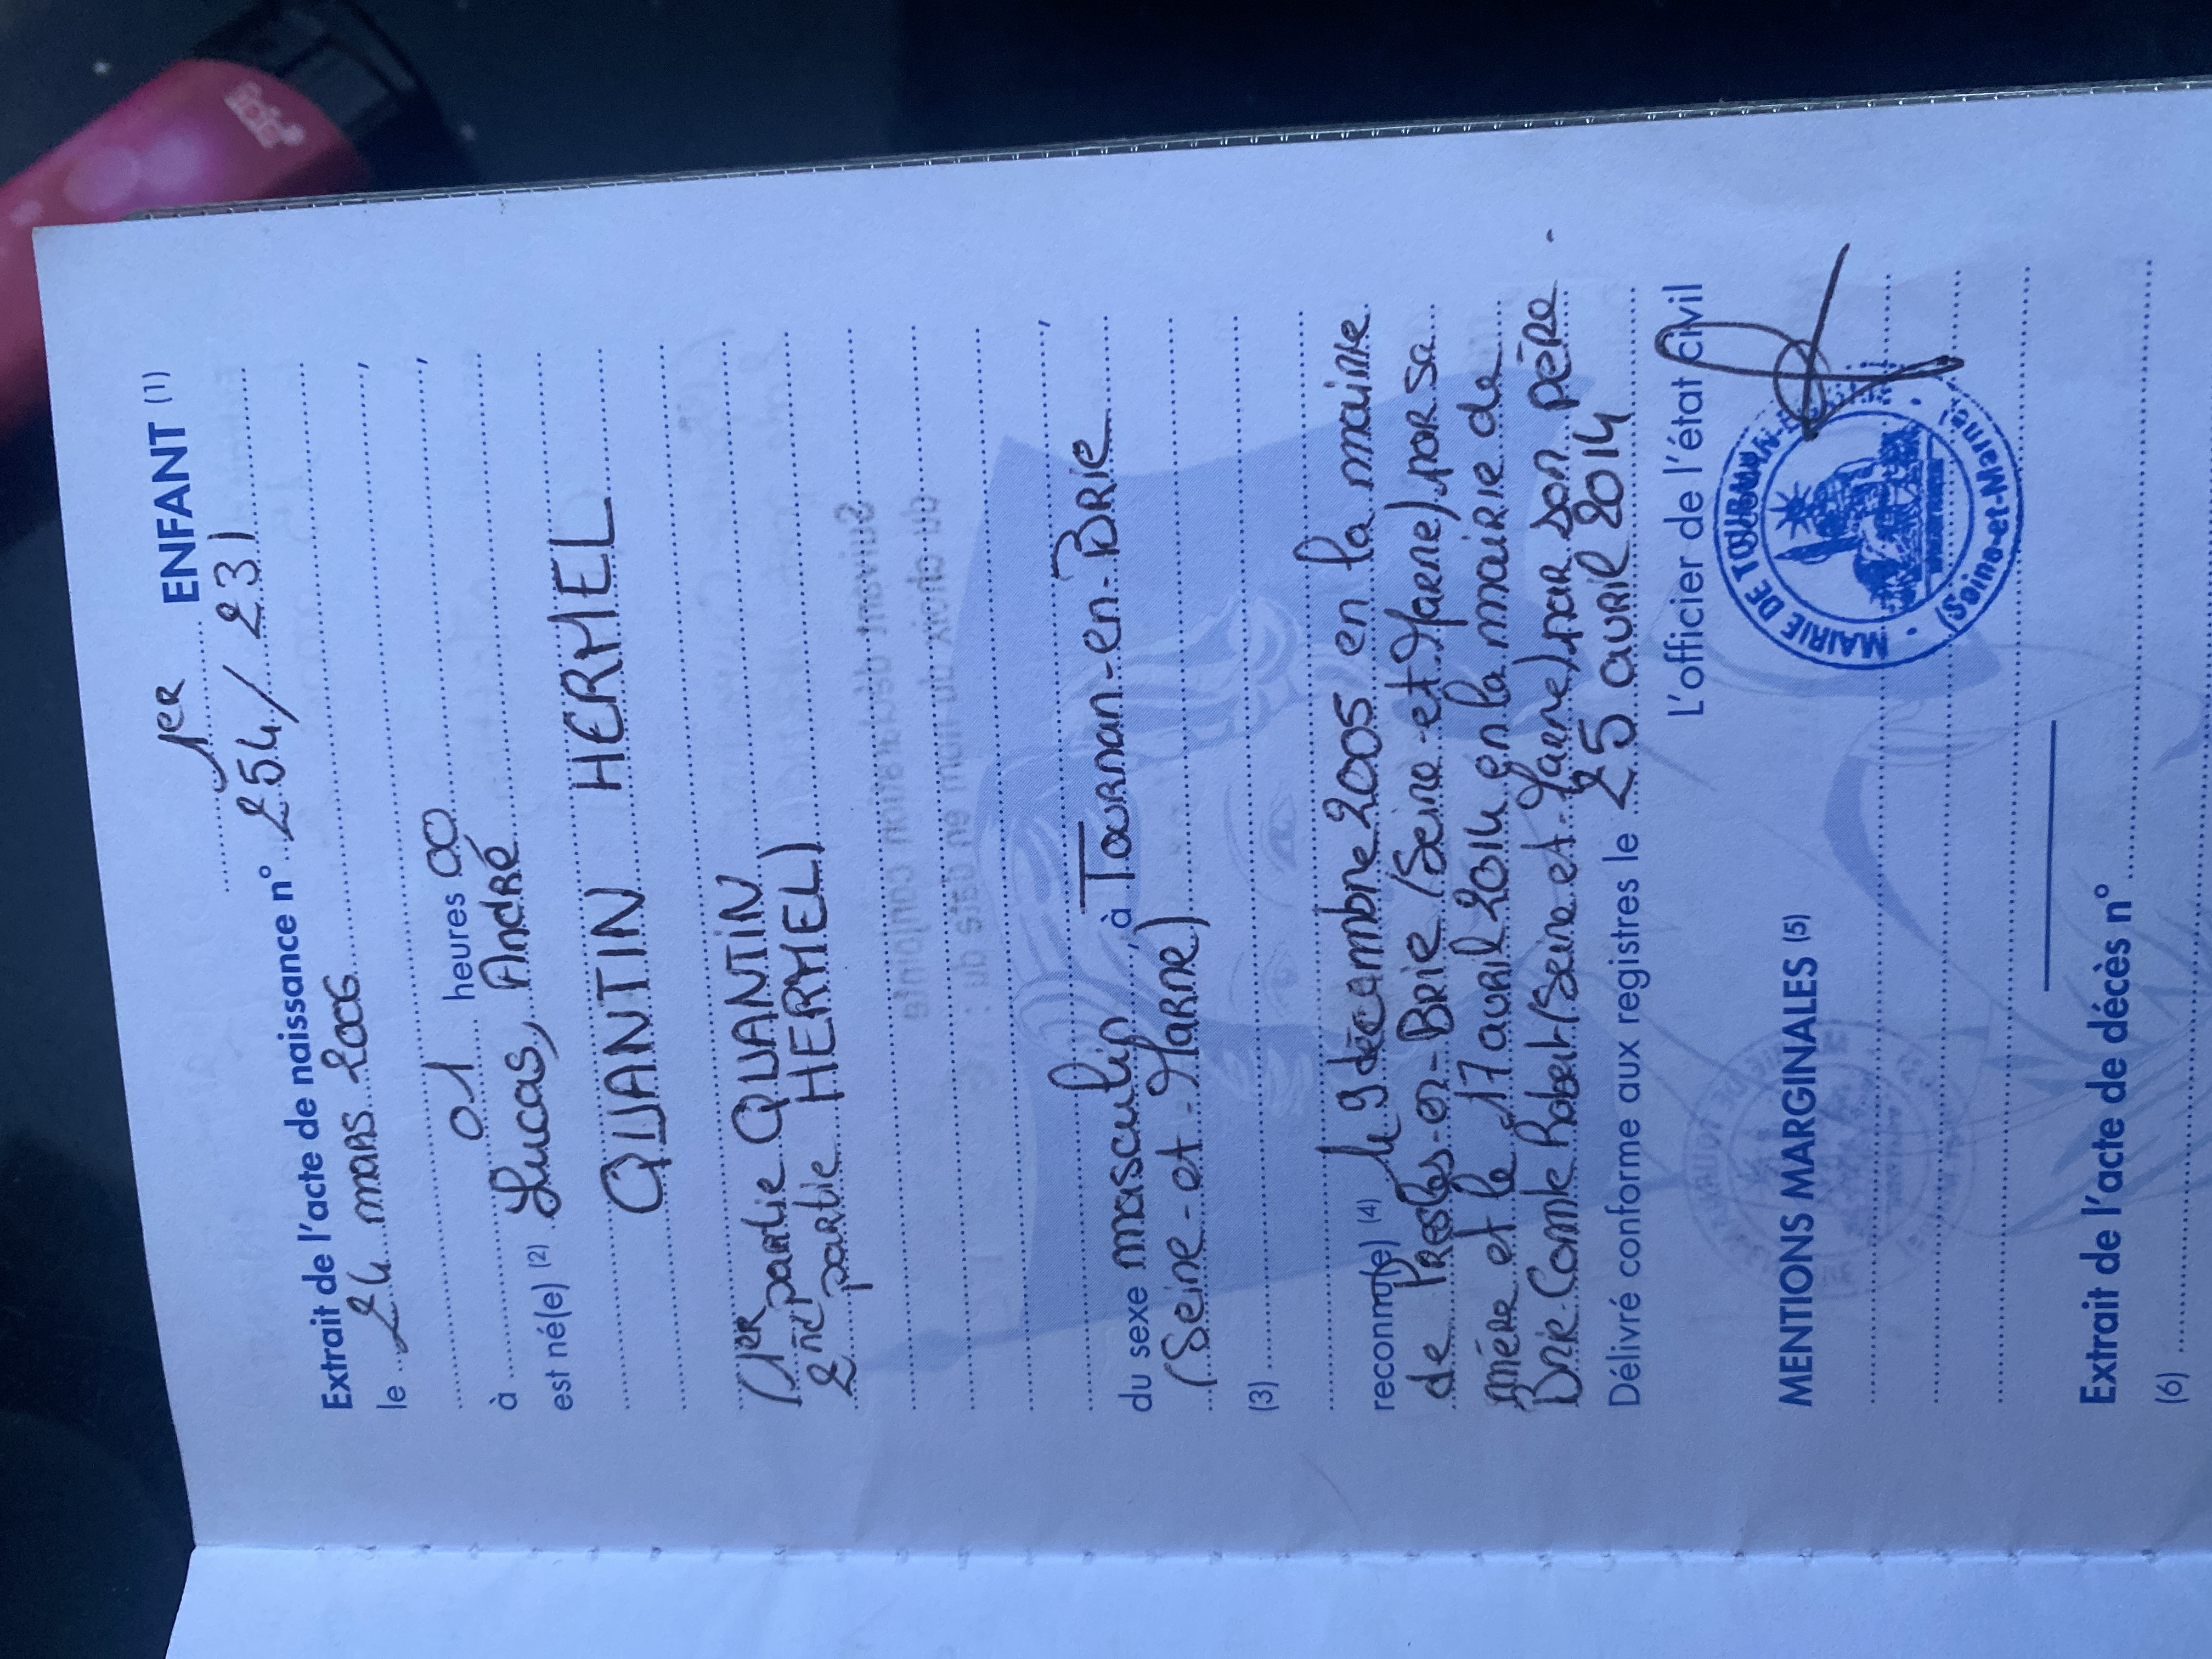 1er ENFANT (1)
Extrait de l'acte de naissance n° 254/231
le 24 mars 2006
à 01 heures 00
est né(e) (2) Lucas, André
QUANTIN HERMEL
(1er partie QUANTIN
2ème partie HERMEL)
du sexe masculin, à Tournan-en-Brie
(Seine-et-Marne)
(3)
reconnu(e) (4) le 9 décembre 2005 en la mairie
de Presles-en-Brie (Seine-et-Marne) par sa
mère et le 17 avril 2014 en la mairie de
Brie Comte Robert (Seine et-Marne) par son père.
Délivré conforme aux registres le 25 avril 2014
L'officier de l'état civil
MAIRIE DE TOURNAN-EN-BRIE
(Seine-et-Marne)
MENTIONS MARGINALES (5)
Extrait de l'acte de décès n°
(6)